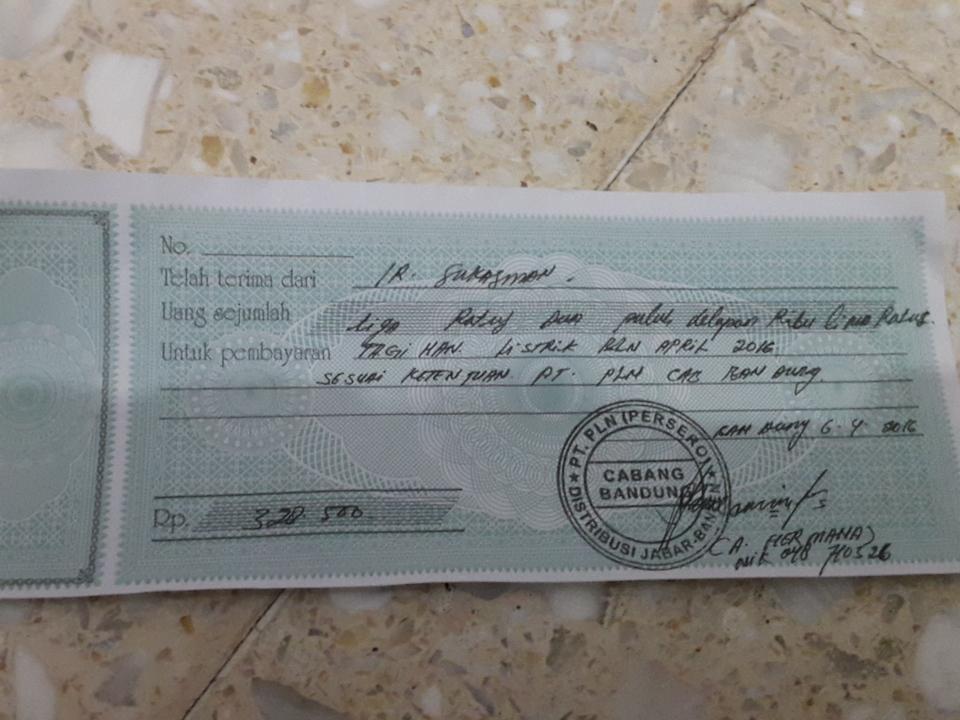 No.
Telah terima dari IR. SUKASMAN.
Uang sejumlah tiga Ratus Dua puluh delapan Ribu lima Ratus.
Untuk pembayaran TAGIHAN LISTRIK PLN APRIL 2016
SESUAI KETENTUAN PT. PLN CAB BANDUNG.
BANDung 6-4 2016
PT. PLN (PERSERO)
CABANG
BANDUNG
DISTRIBUSI JABAR-BAN
Rp. 328 500
(A. HERMANA)
NIK 048 710526